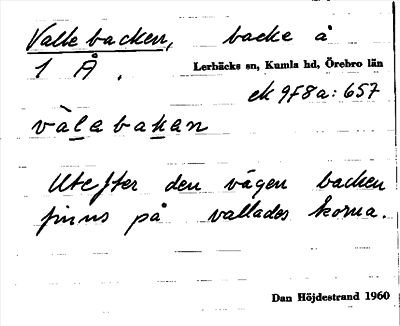 Valle backen, backe å
1 Å.
Lerbäcks sn, Kumla hd, Örebro län
ek 9F8a:657
vàlabakan
Utefter den vägen backen
finns på vallades korna.
Dan Höjdestrand 1960